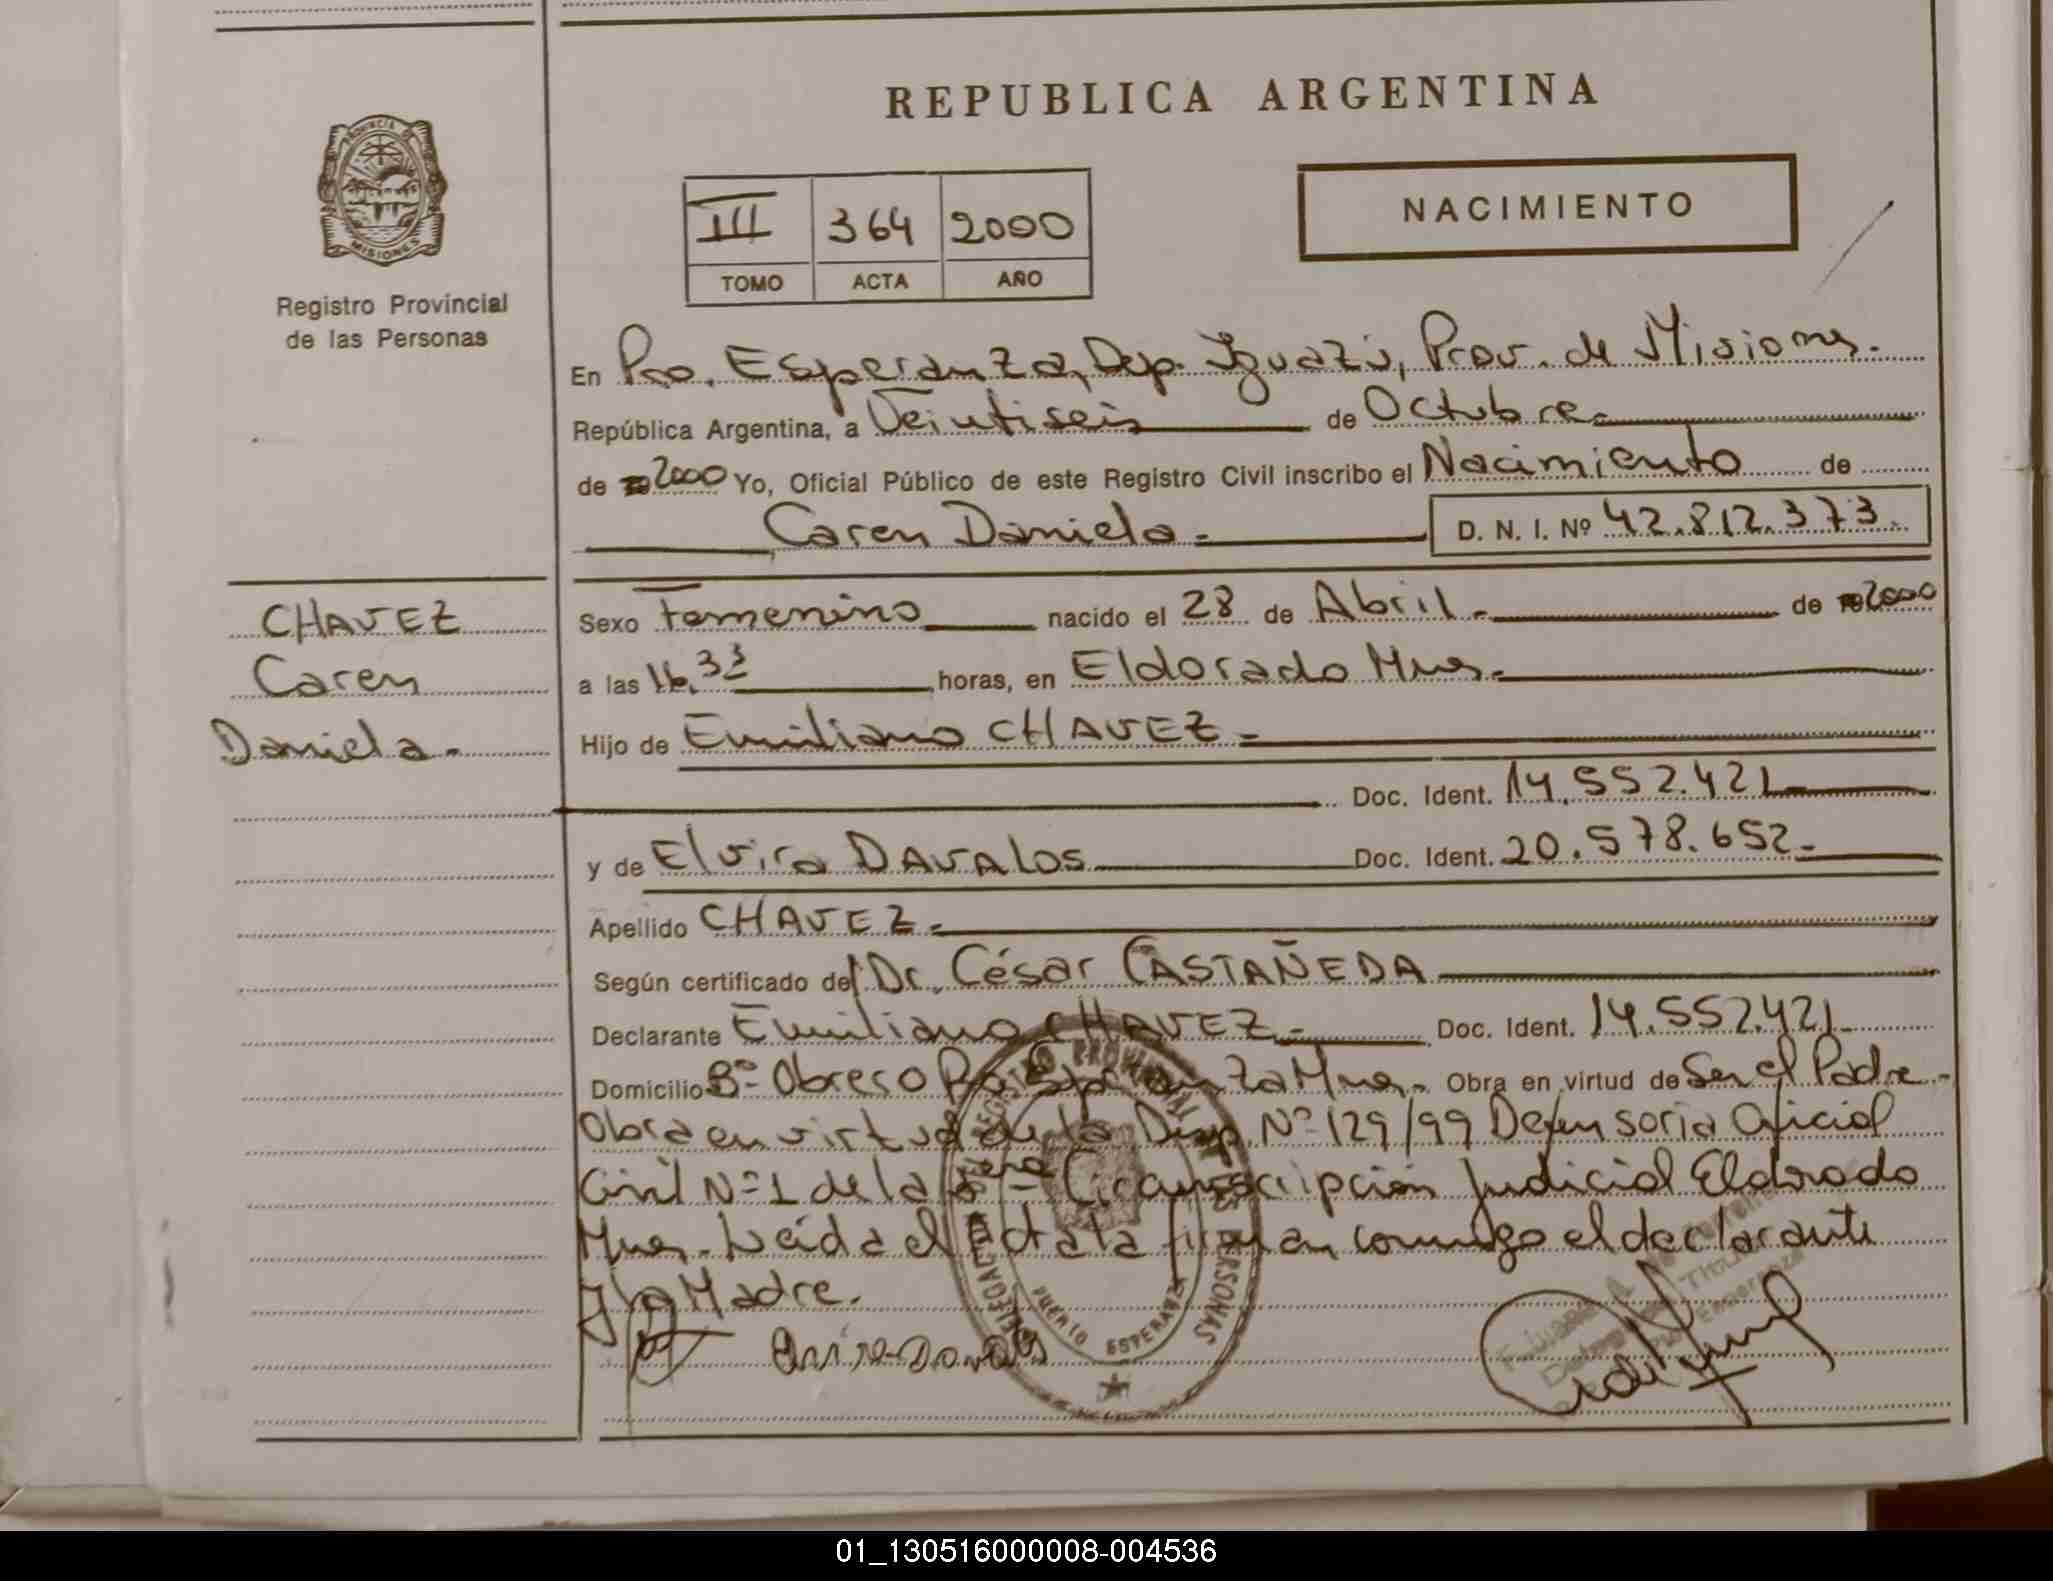 REPUBLICA ARGENTINA
PROVINCIA DE
MISIONES
Registro Provincial
de las Personas
III 364 2000
TOMO ACTA AÑO
NACIMIENTO
En Pto. Esperanza, Dep. Iguazú, Prov. de Misiones.
República Argentina, a Veintiseis de Octubre.
de 2000 Yo, Oficial Público de este Registro Civil inscribo el Nacimiento de
Caren Daniela.
D. N. I. Nº 42.812.373.
CHAVEZ
Caren
Daniela.
Sexo Femenino nacido el 28 de Abril. de 2000
a las 16,33 horas, en Eldorado Mnes.
Hijo de Emiliano CHAVEZ.
Doc. Ident. 14.552.421
y de Elvira DAVALOS Doc. Ident. 20.578.652.
Apellido CHAVEZ.
Según certificado del Dr. César CASTAÑEDA
Declarante Emiliano CHAVEZ. Doc. Ident. 14.552.421.
Domicilio Bº Obrero Pto Esperanza Mnes. Obra en virtud de Ser el Padre.
Obra en virtud de la Disp. Nº 129/99 Defensoria Oficial
Civil Nº 1 de la Circunscripción Judicial Eldorado
Mnes. Leída el Acta la firman conmigo el declarante
y la Madre.
REGISTRO PROVINCIAL DE LAS PERSONAS
PUERTO ESPERANZA
01_130516000008-004536